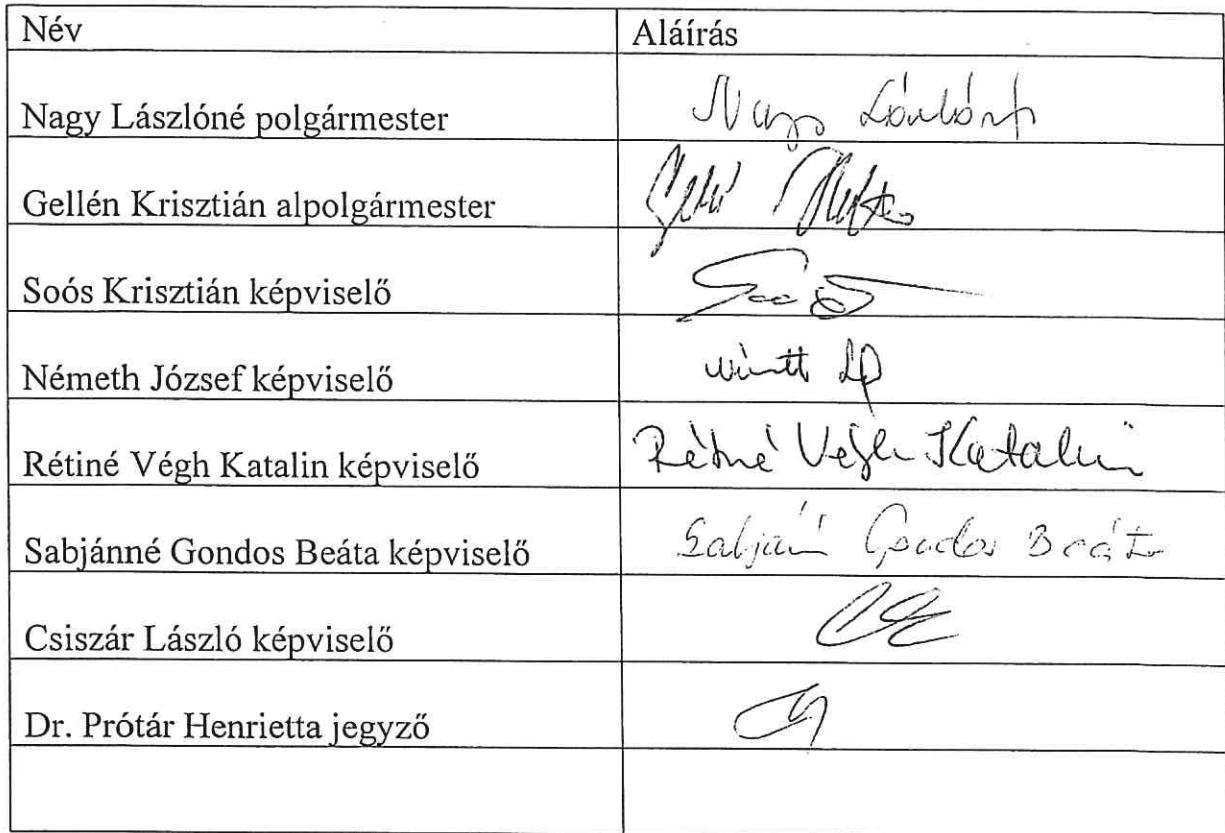 Név Aláírás
Nagy Lászlóné polgármester
Gellén Krisztián alpolgármester
Soós Krisztián képviselő
Németh József képviselő
Rétiné Végh Katalin képviselő Rétiné Végh Katalin
Sabjánné Gondos Beáta képviselő Gondos Beáta
Csiszár László képviselő
Dr. Prótár Henrietta jegyző